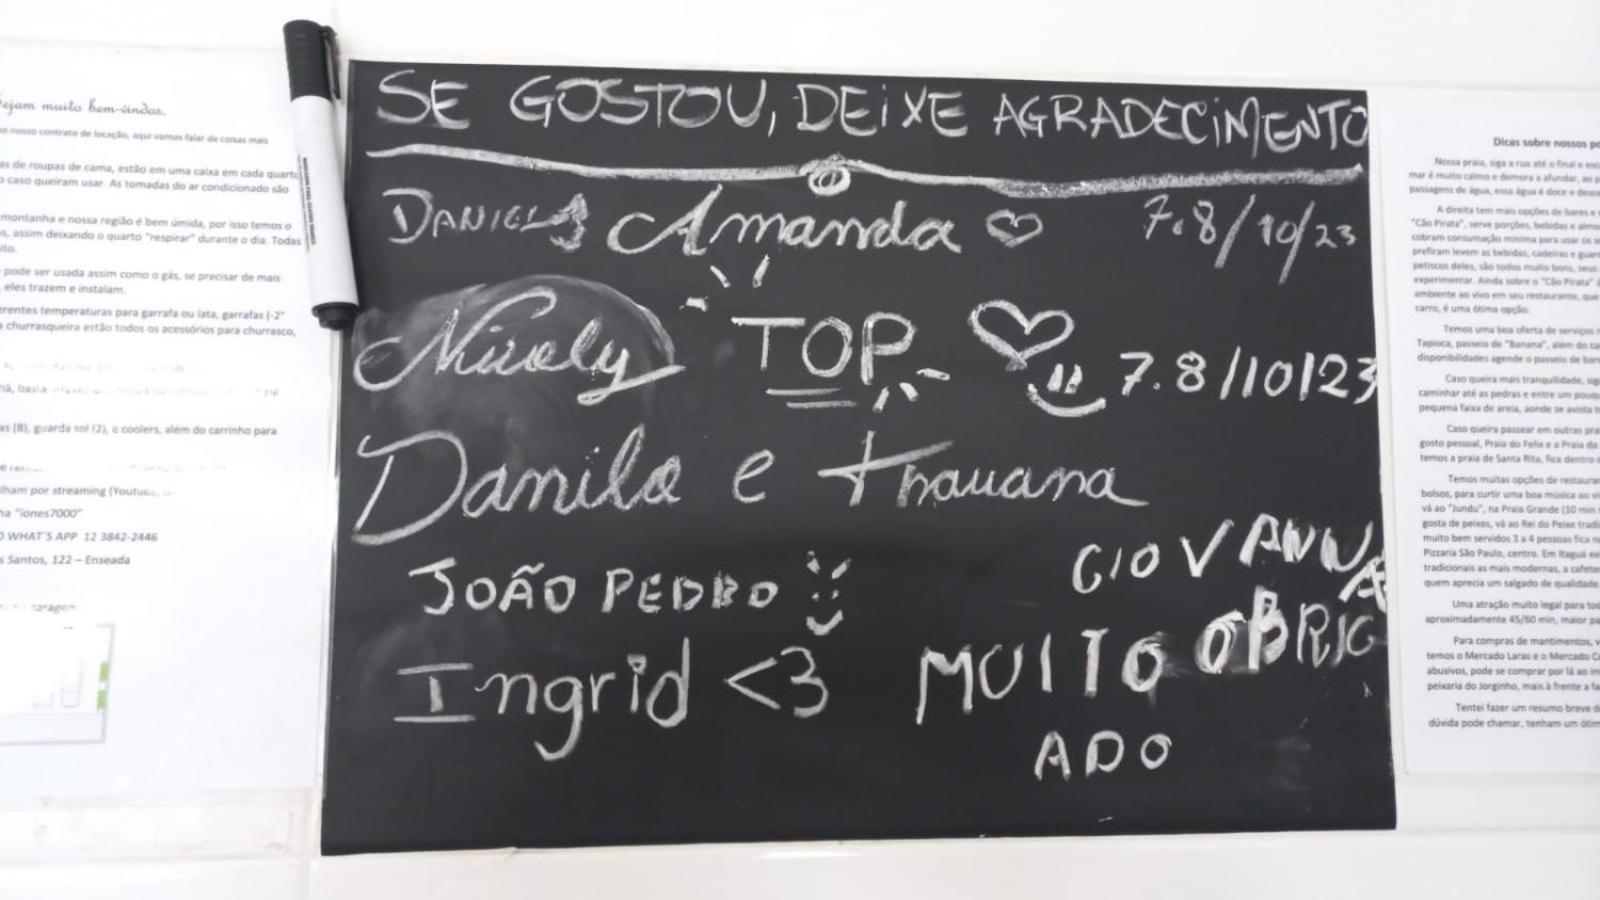 SE GOSTOU, DEIXE AGRADECIMENTO
DANIEL Amanda ♡ 7.8/10/23
Nicoly TOP ♡ 7.8/10/23
Danilo e Thauana
JOÃO PEDRO
GIOVANNA
Ingrid <3
MUITO OBRIG
ADO
ejam muito bem-vindos.
nosso contrato de locação, aqui vamos falar de coisas mais
as de roupas de cama, estão em uma caixa em cada quarto
caso queiram usar. As tomadas do ar condicionado são
montanha e nossa região é bem úmida, por isso temos o
s, assim deixando o quarto "respirar" durante o dia. Todas
ito.
pode ser usada assim como o gás, se precisar de mais
, eles trazem e instalam.
erentes temperaturas para garrafa ou lata, garrafas (-2°
churrasqueira estão todos os acessórios para churrasco,
hã, basta
as (8), guarda sol (2), e coolers, além do carrinho para
lham por streaming (Youtube,
ha "iones7000"
O WHAT`S APP 12 3842-2446
s Santos, 122 – Enseada
garagem
Dicas sobre nossos
Nossa praia, siga a rua até o final e
mar é muito calmo e demora a afundar, ao
passagens de água, essa água é doce e
A direita tem mais opções de bares e
"Cão Pirata", serve porções, bebidas e
cobram consumação mínima para usar os
prefiram levem as bebidas, cadeiras e
petiscos deles, são todos muito bons, seus
experimentar. Ainda sobre o "Cão Pirata"
ambiente ao vivo em seu restaurante, que
carro, é uma ótima opção.
Temos uma boa oferta de serviços
Tapioca, passeio de "Banana", além do
disponibilidades agende o passeio de
Caso queira mais tranquilidade,
caminhar até as pedras e entre um
pequena faixa de areia, aonde se avista
Caso queira passear em outras
gosto pessoal, Praia do Felix e a Praia da
temos a praia de Santa Rita, fica dentro
Temos muitas opções de
bolsos, para curtir uma boa música ao
vá ao "Jundu", na Praia Grande (10 min
gosta de peixes, vá ao Rei do Peixe
muito bem servidos 3 a 4 pessoas fica
Pizzaria São Paulo, centro. Em Itaguá
tradicionais as mais modernas, a
quem aprecia um salgado de qualidade
Uma atração muito legal para
aproximadamente 45/60 min, maior
Para compras de mantimentos,
temos o Mercado Laras e o Mercado
abusivos, pode se comprar por lá ao
peixaria do Jorginho, mais à frente a
Tentei fazer um resumo breve
dúvida pode chamar, tenham um